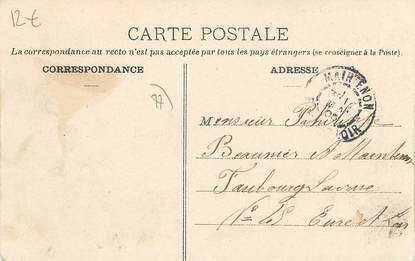 12-€
CARTE POSTALE
La correspondance au recto n'est pas acceptée par tous les pays étrangers (se renseigner à la Poste).
CORRESPONDANCE
ADRESSE
MAINTENON
LOIR
Monsieur
Beaumier A Maintenon
Faubourg
Eure et Loir